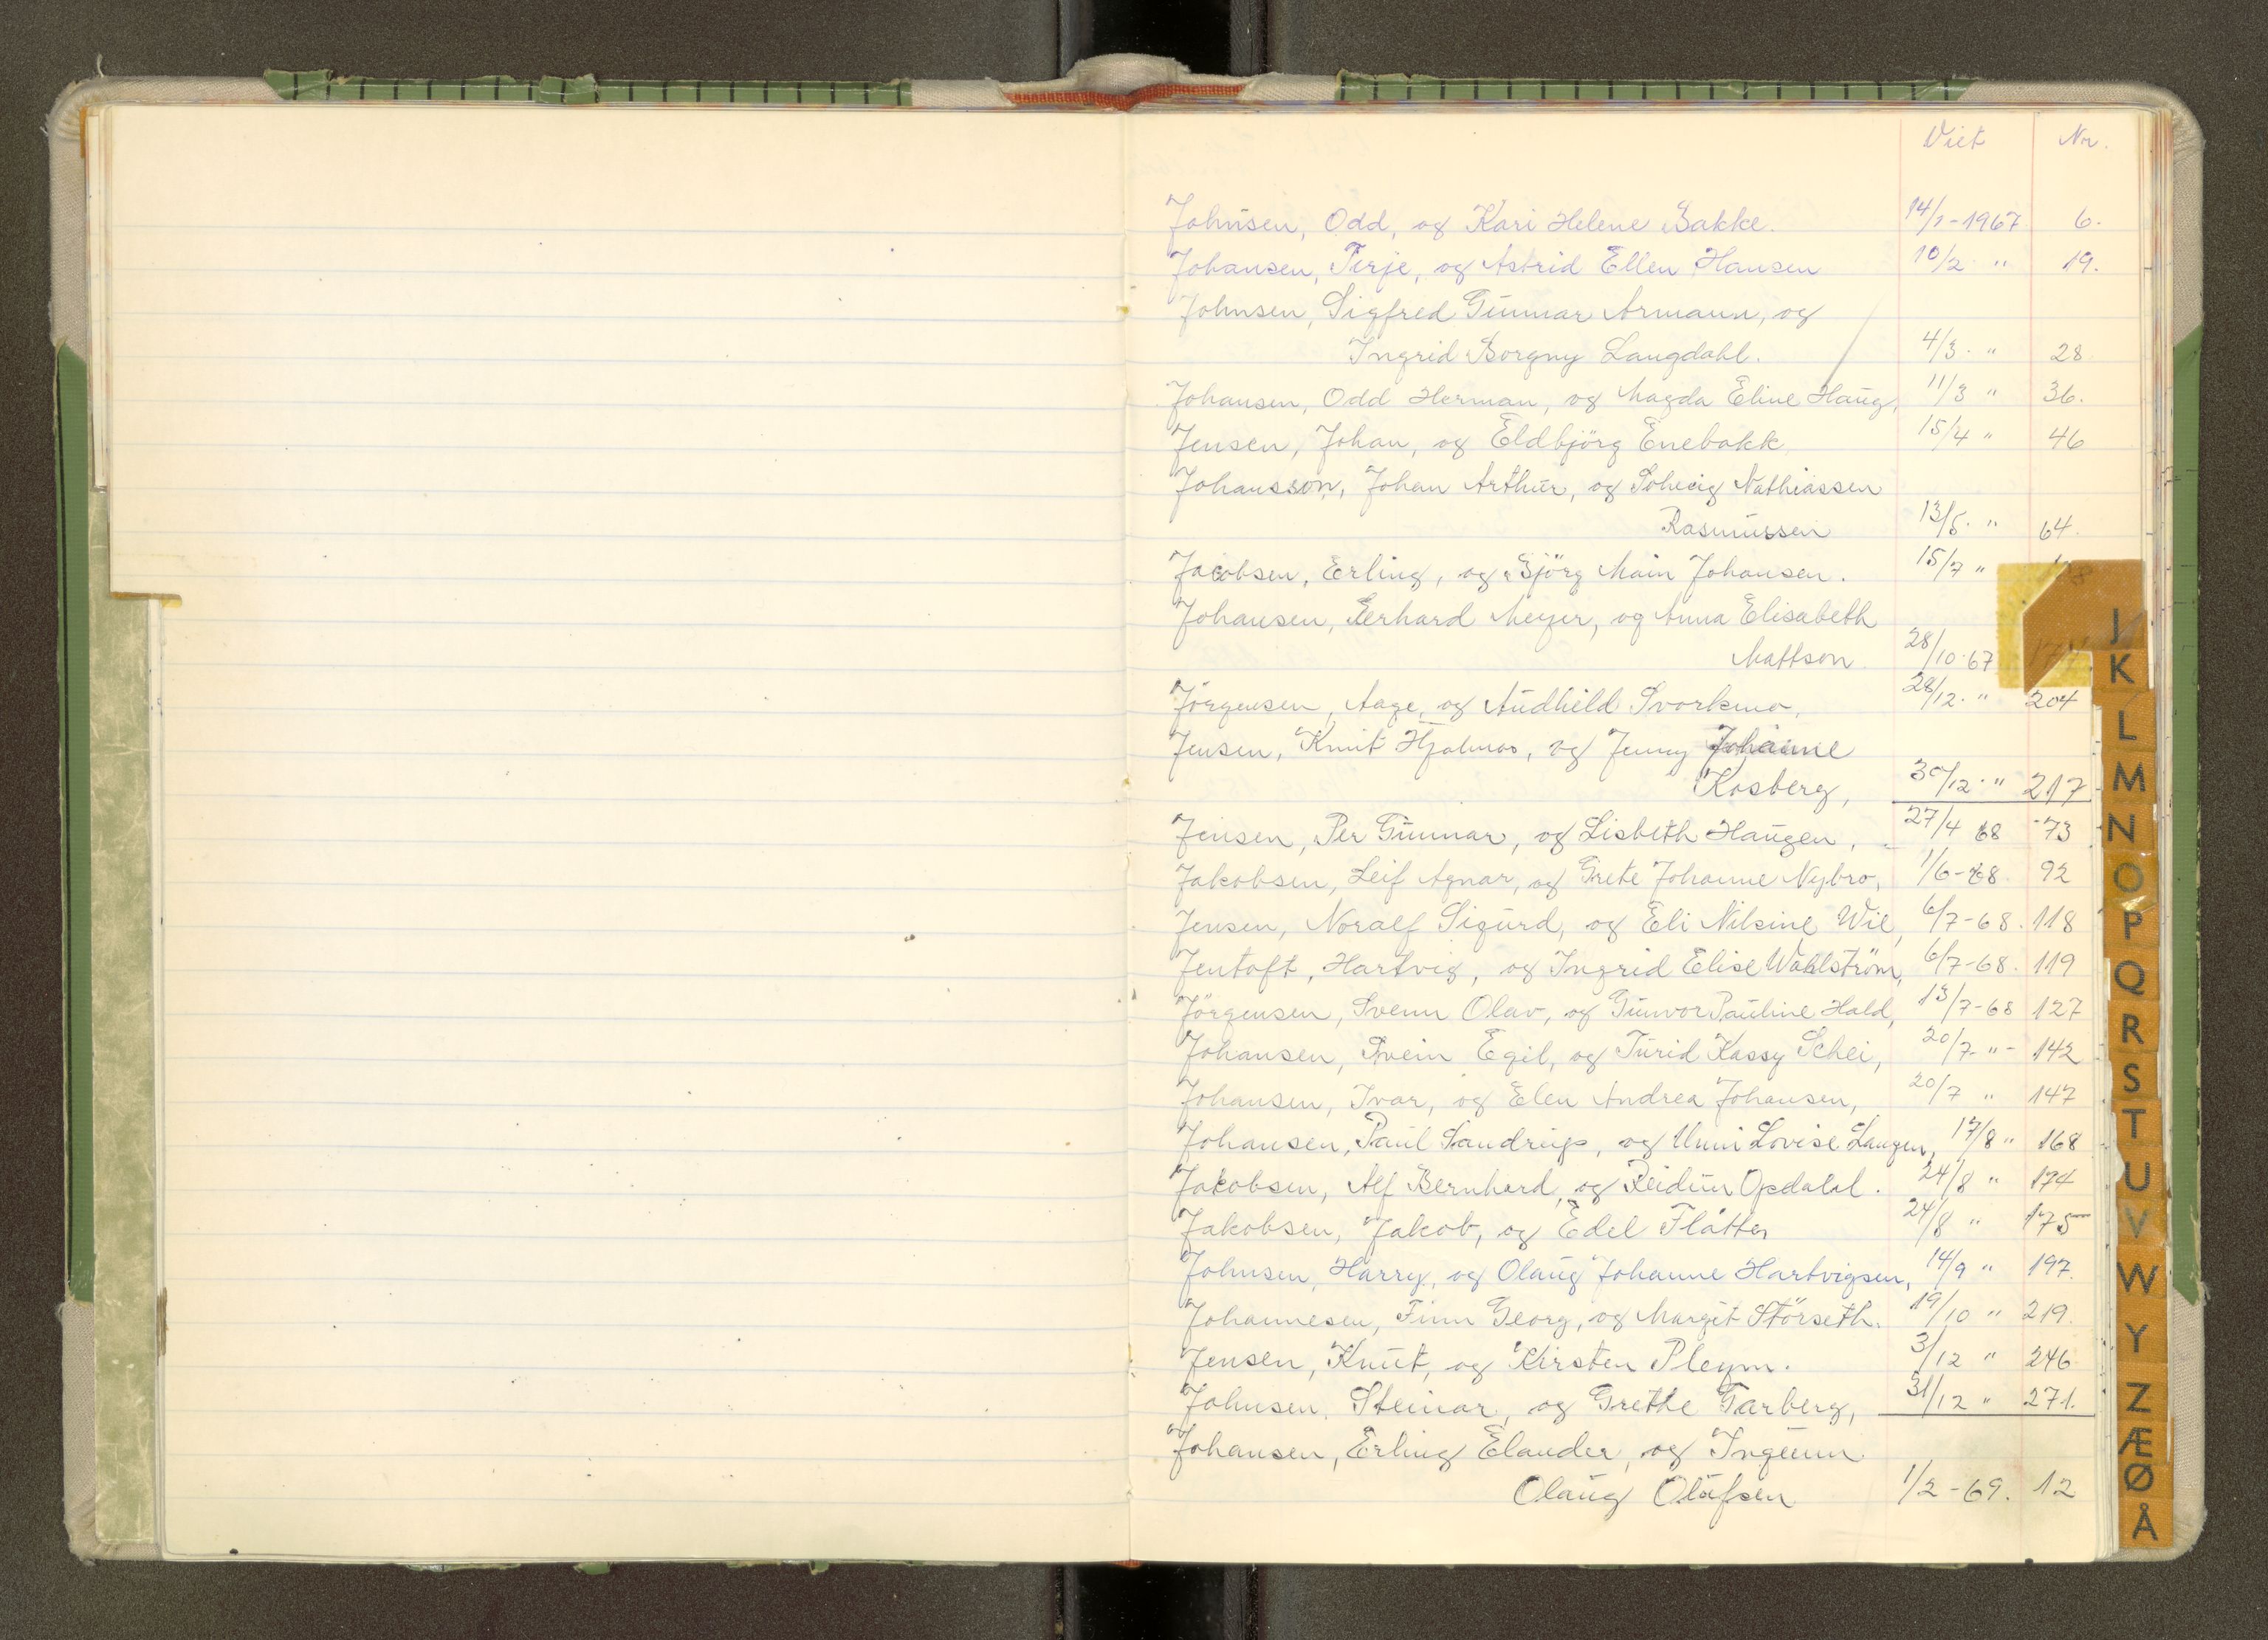 Viet Nr.
Johnsen, Odd, og Kari Helene Bakke. 14/1-1967 6.
Johansen, Terje, og Astrid Ellen Hansen 10/2 " 19.
Johnsen, Sigfred Gunnar Armann, og
Ingrid Borgny Langdahl. 4/3. " 28
Johansen, Odd Herman, og Magda Eline Haug, 11/3 " 36.
Jensen, Johan, og Eldbjörg Enebakk 15/4 " 46
Johansson, Johan Arthur, og Solveig Mathiassen
Rasmussen 13/5. " 64.
Jacobsen, Erling, og Björg Main Johansen. 15/7 "
Johansen, Gerhard Meyer, og Anna Elisabeth
Mattson. 28/10-67
Jörgensen, Aage, og Audhild Svorkmo, 28/12. " 204
Jensen, Knut Hjalmar, og Jenny Johanne
Kosberg, 30/12. " 217
Jensen, Per Gunnar, og Lisbeth Haugen, 27/4 68 73
Jakobsen, Leif Agnar, og Grete Johanne Nybro, 1/6-68. 92
Jensen, Noralf Sigurd, og Eli Nilsine Wil, 6/7-68. 118
Jentoft, Hartvig, og Ingrid Elise Wahlström, 6/7-68. 119
Jörgensen, Svenn Olav, og Gunvor Pauline Hald, 13/7-68 127
Johansen, Svein Egil, og Turid Kassy Schei, 20/7- " - 142
Johansen, Ivar, og Elen Andrea Johansen, 20/7 " 147
Johansen, Paul Sandrup, og Unni Lovise Langen, 17/8 " 168
Jakobsen, Alf Bernhard, og Reidun Opdahl. 24/8 " 174
Jakobsen, Jakob, og Edel Flåtten 24/8 " 175
Johnsen, Harry, og Olaug Johanne Hartvigsen, 14/9 " 197
Johannesen, Finn Georg, og Margit Störseth. 19/10 " 219.
Jensen, Knut, og Kirsten Pleym. 3/12 " 246
Johnsen, Steinar, og Grethe Garberg, 31/12 " 271.
Johansen, Erling Elander, og Ingunn
Olaug Olufsen 1/2-69. 12
J
K
L
M
N
O
P
Q
R
S
T
U
V
W
Y
Z
Æ
Ø
Å